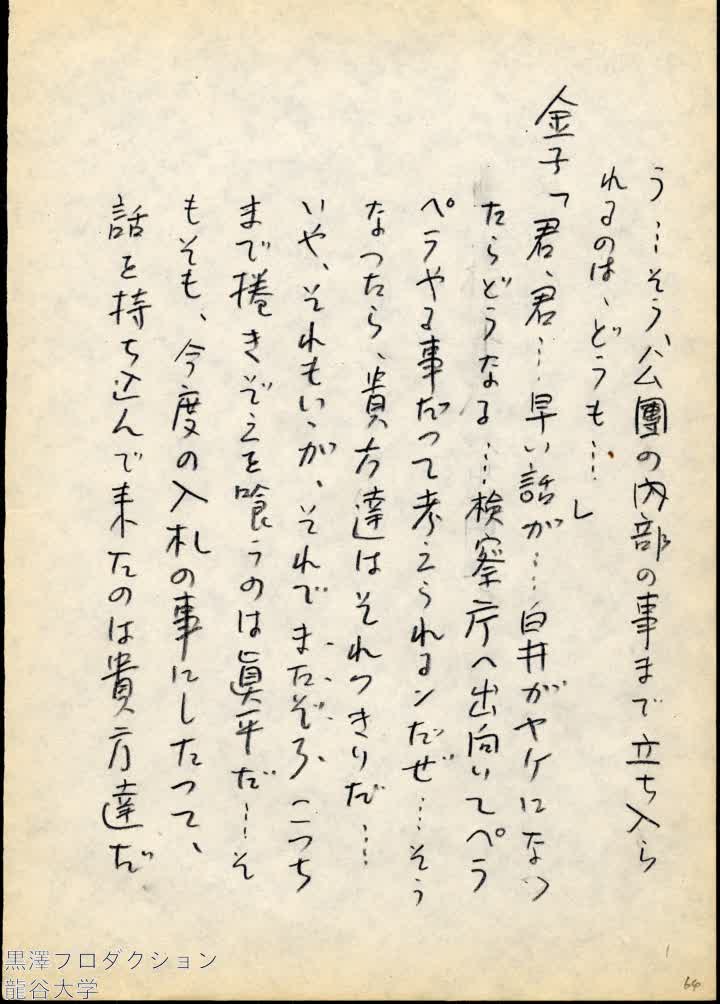 う…そう、公團の内部の事まで立ち入ら
れるのは、どうも…」
金子「君、君…早い話が…白井がヤケになつ
たらどうなる…検察庁へ出向いてペラ
ペラやる事だつて考えられるンだぜ…そう
なつたら、貴方達はそれつきりだ…
いや、それもいゝが、それでまたぞろ、こつち
まで捲きぞえを喰うのは眞平だ…そ
もそも、今度の入札の事にしたつて、
話を持ち込んで来たのは貴方達だ
黒澤プロダクション
龍谷大学
1
64